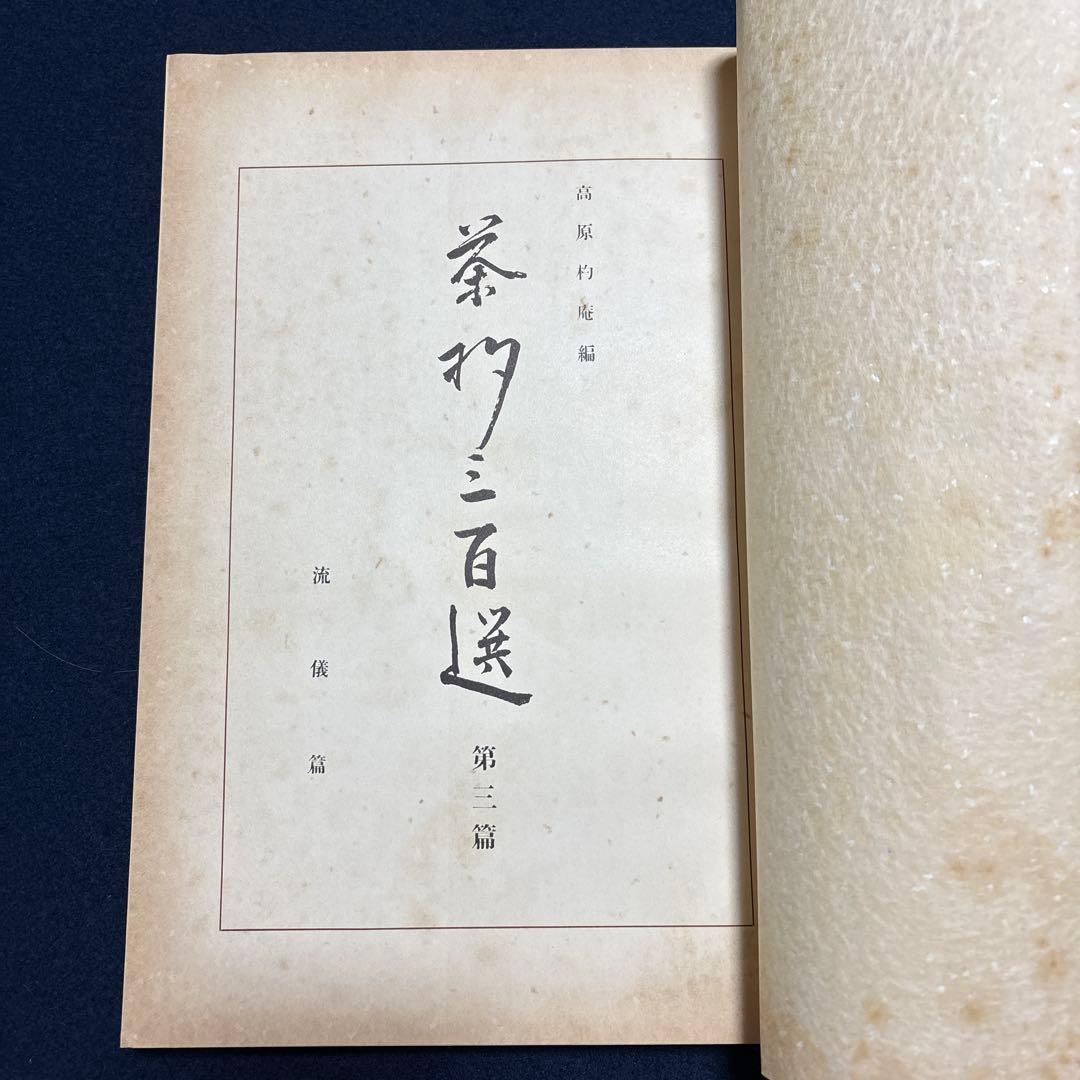 高原杓庵編
茶杓三百選 第三篇
流儀篇